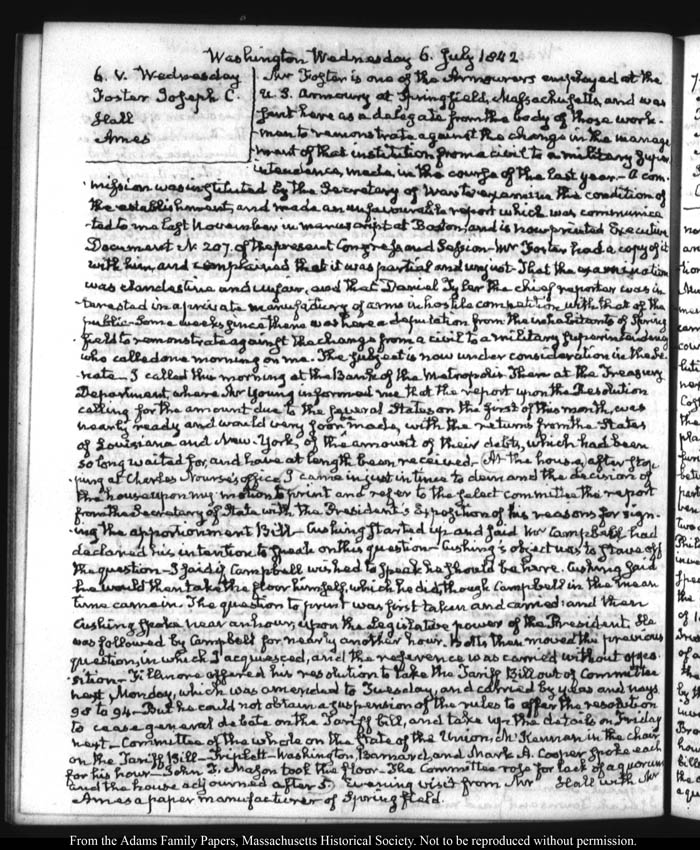 Washington Wednesday 6. July 1842
6. V. Wednesday
Foster Joseph C.
Hall
Ames
Mr Foster is one of the Armourers employed at the
U. S. Armoury at Springfield, Massachusetts, and was
sent here as a delegate from the body of those work-
-men to remonstrate against the change in the manage
ment of that institution from a civil to a military super
intendence, made in the course of the last year. – A com-
-mission was instituted by the Secretary of War to examine the condition of
the establishment, and made an unfavourable report which was communica
ted to me last November in manuscript at Boston, and is now printed Executive
Document N. 207. of the present Congress and Session. Mr Foster had a copy of it
with him, and complained that it was partial and unjust – That the examination
was clandestine and unfair, and that Daniel Tyler the chief reporter was in-
terested in a private manufactory of arms in hostile competition with that of the
public – Some weeks since there was here a deputation from the inhabitants of Spring
field to remonstrate against the change from a civil to a military Superintendency
who called one morning on me. The subject is now under consideration in the Se-
-nate – I called this morning at the Bank of the Metropolis Then at the Treasury
Department, where Mr Young informed me that the report upon the Resolution
calling for the amount due to the several States on the first of this month, was
nearly ready and would very soon be made, with the returns from the States
of Louisiana and New-York, of the amount of their debts, which had been
so long waited for, and have at length been received. (At the house) after stop
ping at Charles Nourse's office, I came in just in time to demand the decision of
the house upon my motion to print and refer to the select committee the report
from the Secretary of State with the President's exposition of his reasons for sign-
-ing the apportionment Bill – Cushing started up and said Mr Campbell had
declared his intention to speak on this question – Cushing's object was to stave off
the question – I said if Campbell wished to speak he should be here. Cushing said
he would then take the floor himself, which he did, though Campbell in the mean
time came in. The question to print was first taken and carried: and then
Cushing spoke near an hour, upon the Legislative power of the President. He
was followed by Campbell for nearly another hour. Botts then moved the previous
question, in which I acquiesced, and the reference was carried without oppo
-sition – Fillmore offered his resolution to take the Tariff Bill out of Committee
next Monday, which was amended to Tuesday, and carried by yeas and nays
98 to 94 – But he could not obtain a suspension of the rules to offer the resolution
to cease general debate on the Tariff bill, and take up the details on Friday
next – Committee of the whole on the State of the Union, McKennan in the chair
on the Tariff Bill – Triplett – Washington, Barnard, and Mark A. Cooper spoke each
for his hour – John T. Mason took the floor – The Committee rose for lack of a quorum
and the house adjourned after 5. Evening visit from Mr Hall with Mr
Ames a paper manufacturer of Springfield.
From the Adams Family Papers, Massachusetts Historical Society. Not to be reproduced without permission.